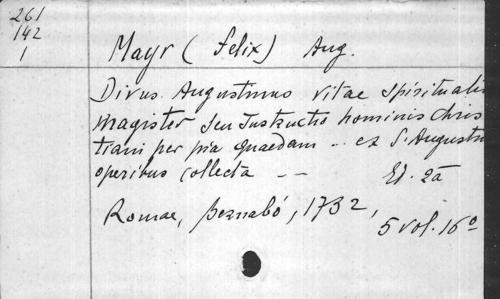 261
142
1
Mayr (Felix) Aug.
Divus Augustinus vitae spiritualis
magister seu Instructio hominis Chris
tiani per pia quaedam -- ex S. Augustini
operibus collecta -- Ed. 2ā
Romae, Bernabó, 1732,
5 vol. 16º